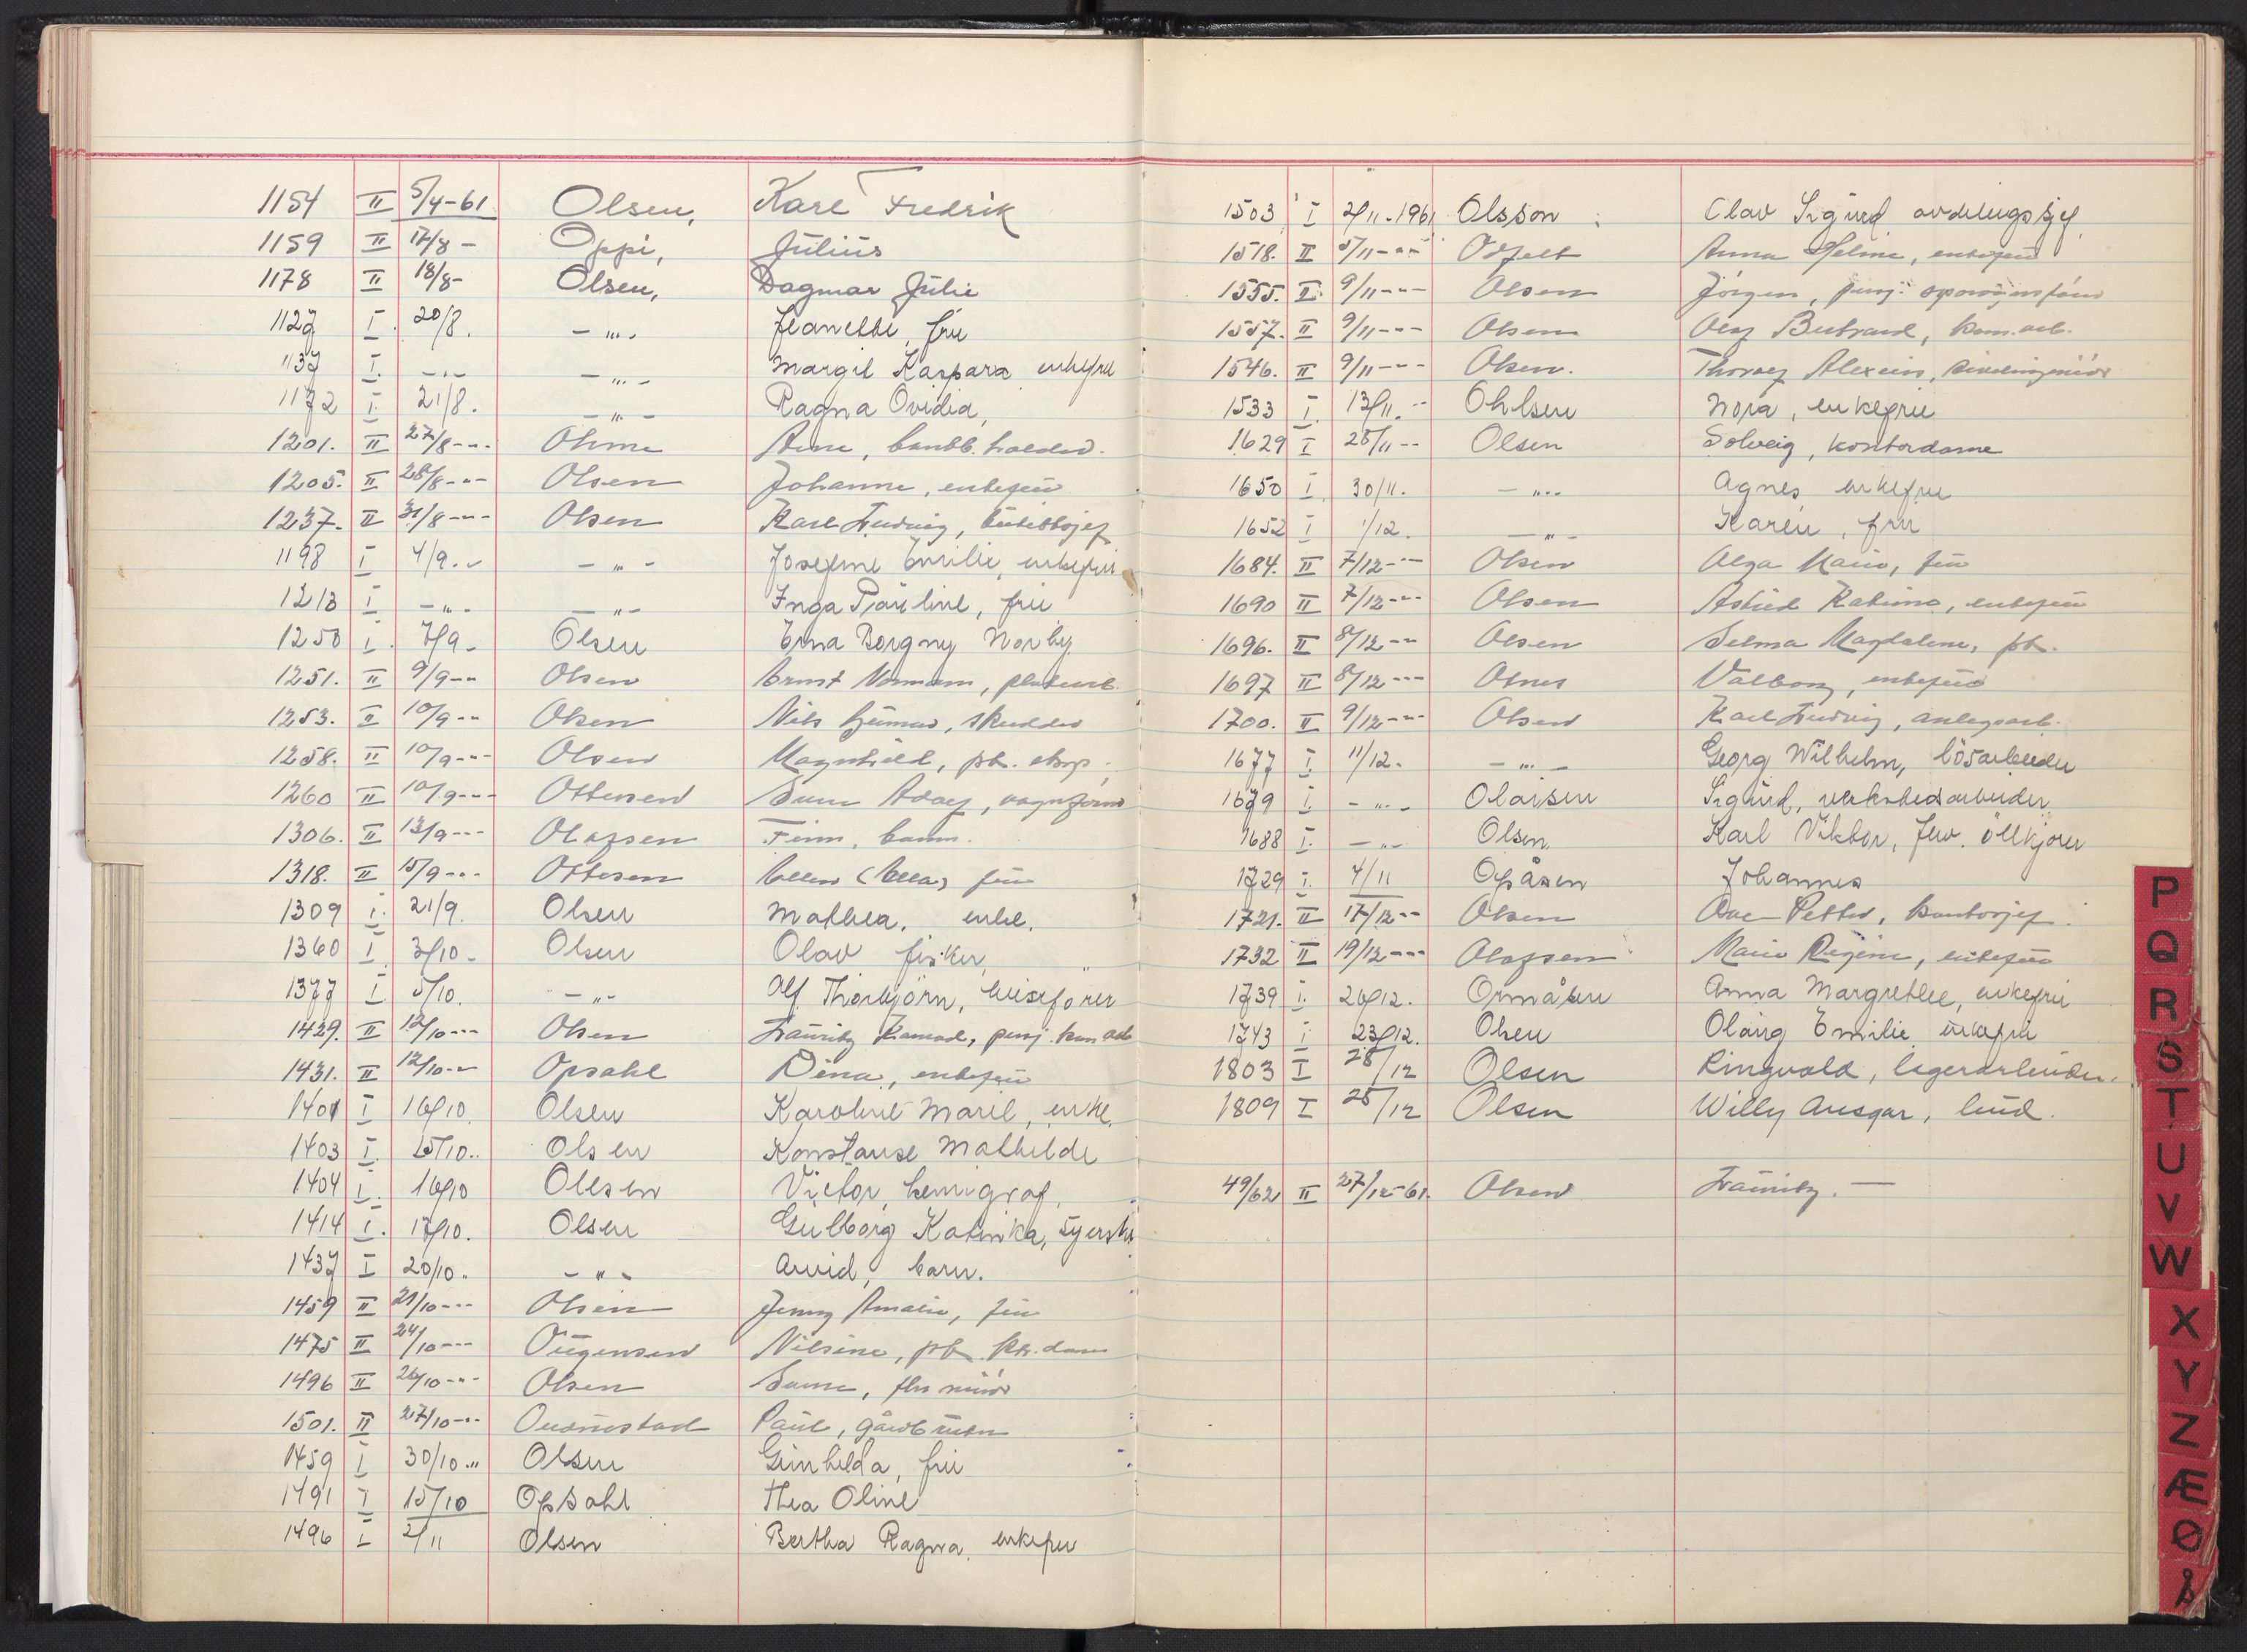 1154 II 5/4-61 Olsen, Karl Fredrik
1159 II 17/8 - Oppi, Julius
1178 II 18/8- Olsen, Dagmar Julie
1127 I. 20/8. -"- Jeanette, fru
1137 I. -"- -"- Margit Kaspara enkefru
1172 I. 21/8. -"- Ragna Ovidia,
1201. II 27/8-"- Ohme Arne,
1205. II 28/8-"- Olsen Johanne, enkefru
1237. II 31/8-"- Olsen Karl Ludvig,
1198 I 4/9. -"- Josefine Emilie, enkefru
1213 I -"- -"- Inga Pauline, fru
1250 I. 7/9- Olsen Erna Borgny Norby
1251. II 9/9-"- Olsen Ernst Normann,
1253. II 10/9-"- Olsen Nils Gunnar,
1258. II 10/9-"- Olsen Magnhild, pt.
1260 II 10/9-"- Ottersen Adolf, vognfører
1306. II 13/9-"- Olafsen Finn, barn.
1318. II 15/9-"- Ottesen Ellen (Ella) fru
1309 I. 21/9. Olsen Mathea, enke.
1360 I 3/10- Olsen Olav fisker,
1377 I 5/10. -"- Alf Thorbjørn, heisefører
1429. II 12/10-"- Olsen Lauritz pensj.
1431. II 12/10-"- Opsahl Dina, enkefru
1401 I 16/10. Olsen Karoline Marie, enke.
1403 I. 15/10.. Olsen Konstanse Mathilde
1404 I. 16/10 Olsen Victor, kemigraf,
1414 I. 17/10. Olsen Gulborg Katinka, syerske
1437 I 20/10. -"- Arvid, barn.
1459 II 21/10-"- Olsen Jenny Amalie, fru
1475 II 24/10-"- Nilsine, pt.
1496 II 26/10-"- Olsen
1501. II 27/10-"- Paul, gårdbruker
1459 I 30/10." Olsen Gunhilda, fru
1491 I 15/10 Opsahl Thea Oline
1496 I 2/11 Olsen Bertha Ragna. enkefru
1503 I 2/11-1961 Olsson Olav Sigurd avdelingssjef
1518. II 5/11-"- Anna Heline, enkefru
1555. II. 9/11-"- Olsen Jørgen, pensj.
1557. II 9/11-"- Olsen Olaf
1546. II 9/11-"- Olsen. Thoralf
1533 I. 13/11.-" Ohlsen Nora, enkefru
1629 I 28/11-- Olsen Solveig, kontordame
1650 I. 30/11. -"- Agnes enkefru
1652 I 1/12. -"- Karen, fru
1684. II 7/12-"- Olsen Olga Marie, fru
1690 II 7/12-"- Olsen Astrid enkefru
1696. II 8/12-"- Olsen Selma Magdalene, pt.
1697 II 8/12-"- Valborg, enkefru
1700. II 9/12-"- Olsen Karl Ludvig, anlegsarb.
1677 I. 11/12. -"- Georg Wilhelm, løsarbeider
1679 I. -"- Olaisen Sigurd, verkstedsarbeider
1688 I. -"- Olsen Karl Viktor,
1729 I. 4/11 Opåsen Johannes
1721. II 17/12-" Olsen Petter, kontorsjef
1732 II 19/12-"- Olafsen Marie Regine, enkefru
1739 I. 20/12. Ormåsen Anna Margrethe, enkefru
1743 I 23/12. Olsen Olaug Emilie. enkefru
1803 I 28/12 Olsen Ringvald, lagerarbeider.
1809 I 28/12 Olsen Willy Ansgar,
49/62 II 27/12-61. Olsen Lauritz. —
P
Q
R
S
T
U
V
W
X
Y
Z
Æ
Ø
Å